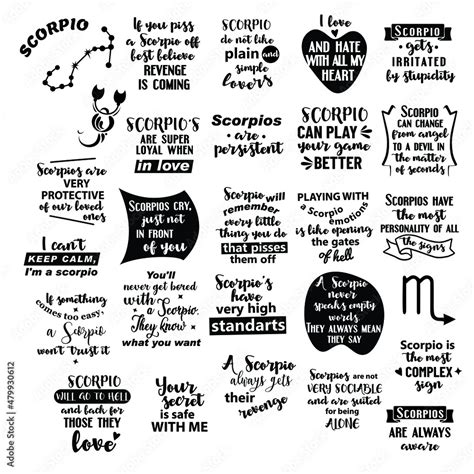 SCORPIO
If you piss
a Scorpio off
best believe
REVENGE
IS COMING
SCORPIO
do not like
plain and
simple
lovers
I love
AND HATE
WITH ALL
MY
HEART
SCORPIO
gets
IRRITATED
by stupidity
SCORPIO'S
ARE SUPER
LOYAL WHEN
in love
Scorpios
are
persistent
SCORPIO
CAN PLAY
your game
BETTER
SCORPIO
CAN CHANGE
from angel
TO A DEVIL IN
the matter
of seconds
Scorpios are
VERY
PROTECTIVE
of our loved
ones
SCORPIOS CRY,
just not
IN FRONT
OF YOU
Scorpio will
remember
every little
thing you do
that pisses
them off
PLAYING WITH
a Scorpio
emotions
is like opening
the gates
of hell
SCORPIOS HAVE
the most
PERSONALITY OF ALL
the signs
I can't
KEEP CALM,
I'm a scorpio
You'll
never get bored
with
a Scorpio.
They know
what you want
Scorpio's
have
very high
standarts
A Scorpio
never
speaks empty
words.
THEY ALWAYS
MEAN
THEY
SAY
If something
comes too easy,
a Scorpio
won't trust it
Scorpio is
the most
COMPLEX
sign
SCORPIO
WILL GO TO HELL
and back for
THOSE THEY
love
Your
secret
is safe
WITH ME
A Scorpio
always gets
their
revenge
Scorpios are not
VERY SOCIABLE
and are suited
for being
ALONE
SCORPIOS
ARE ALWAYS
aware
Adobe Stock | #479930612
Adobe Stock